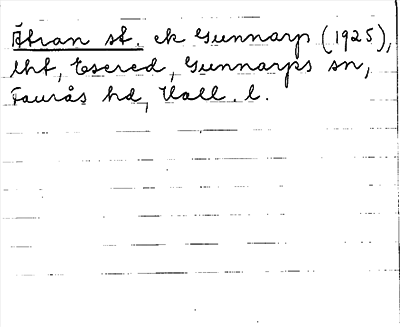 Ätran st. ek Gunnarp (1925),
lht, Esered, Gunnarps sn,
Faurås hd, Hall. l.